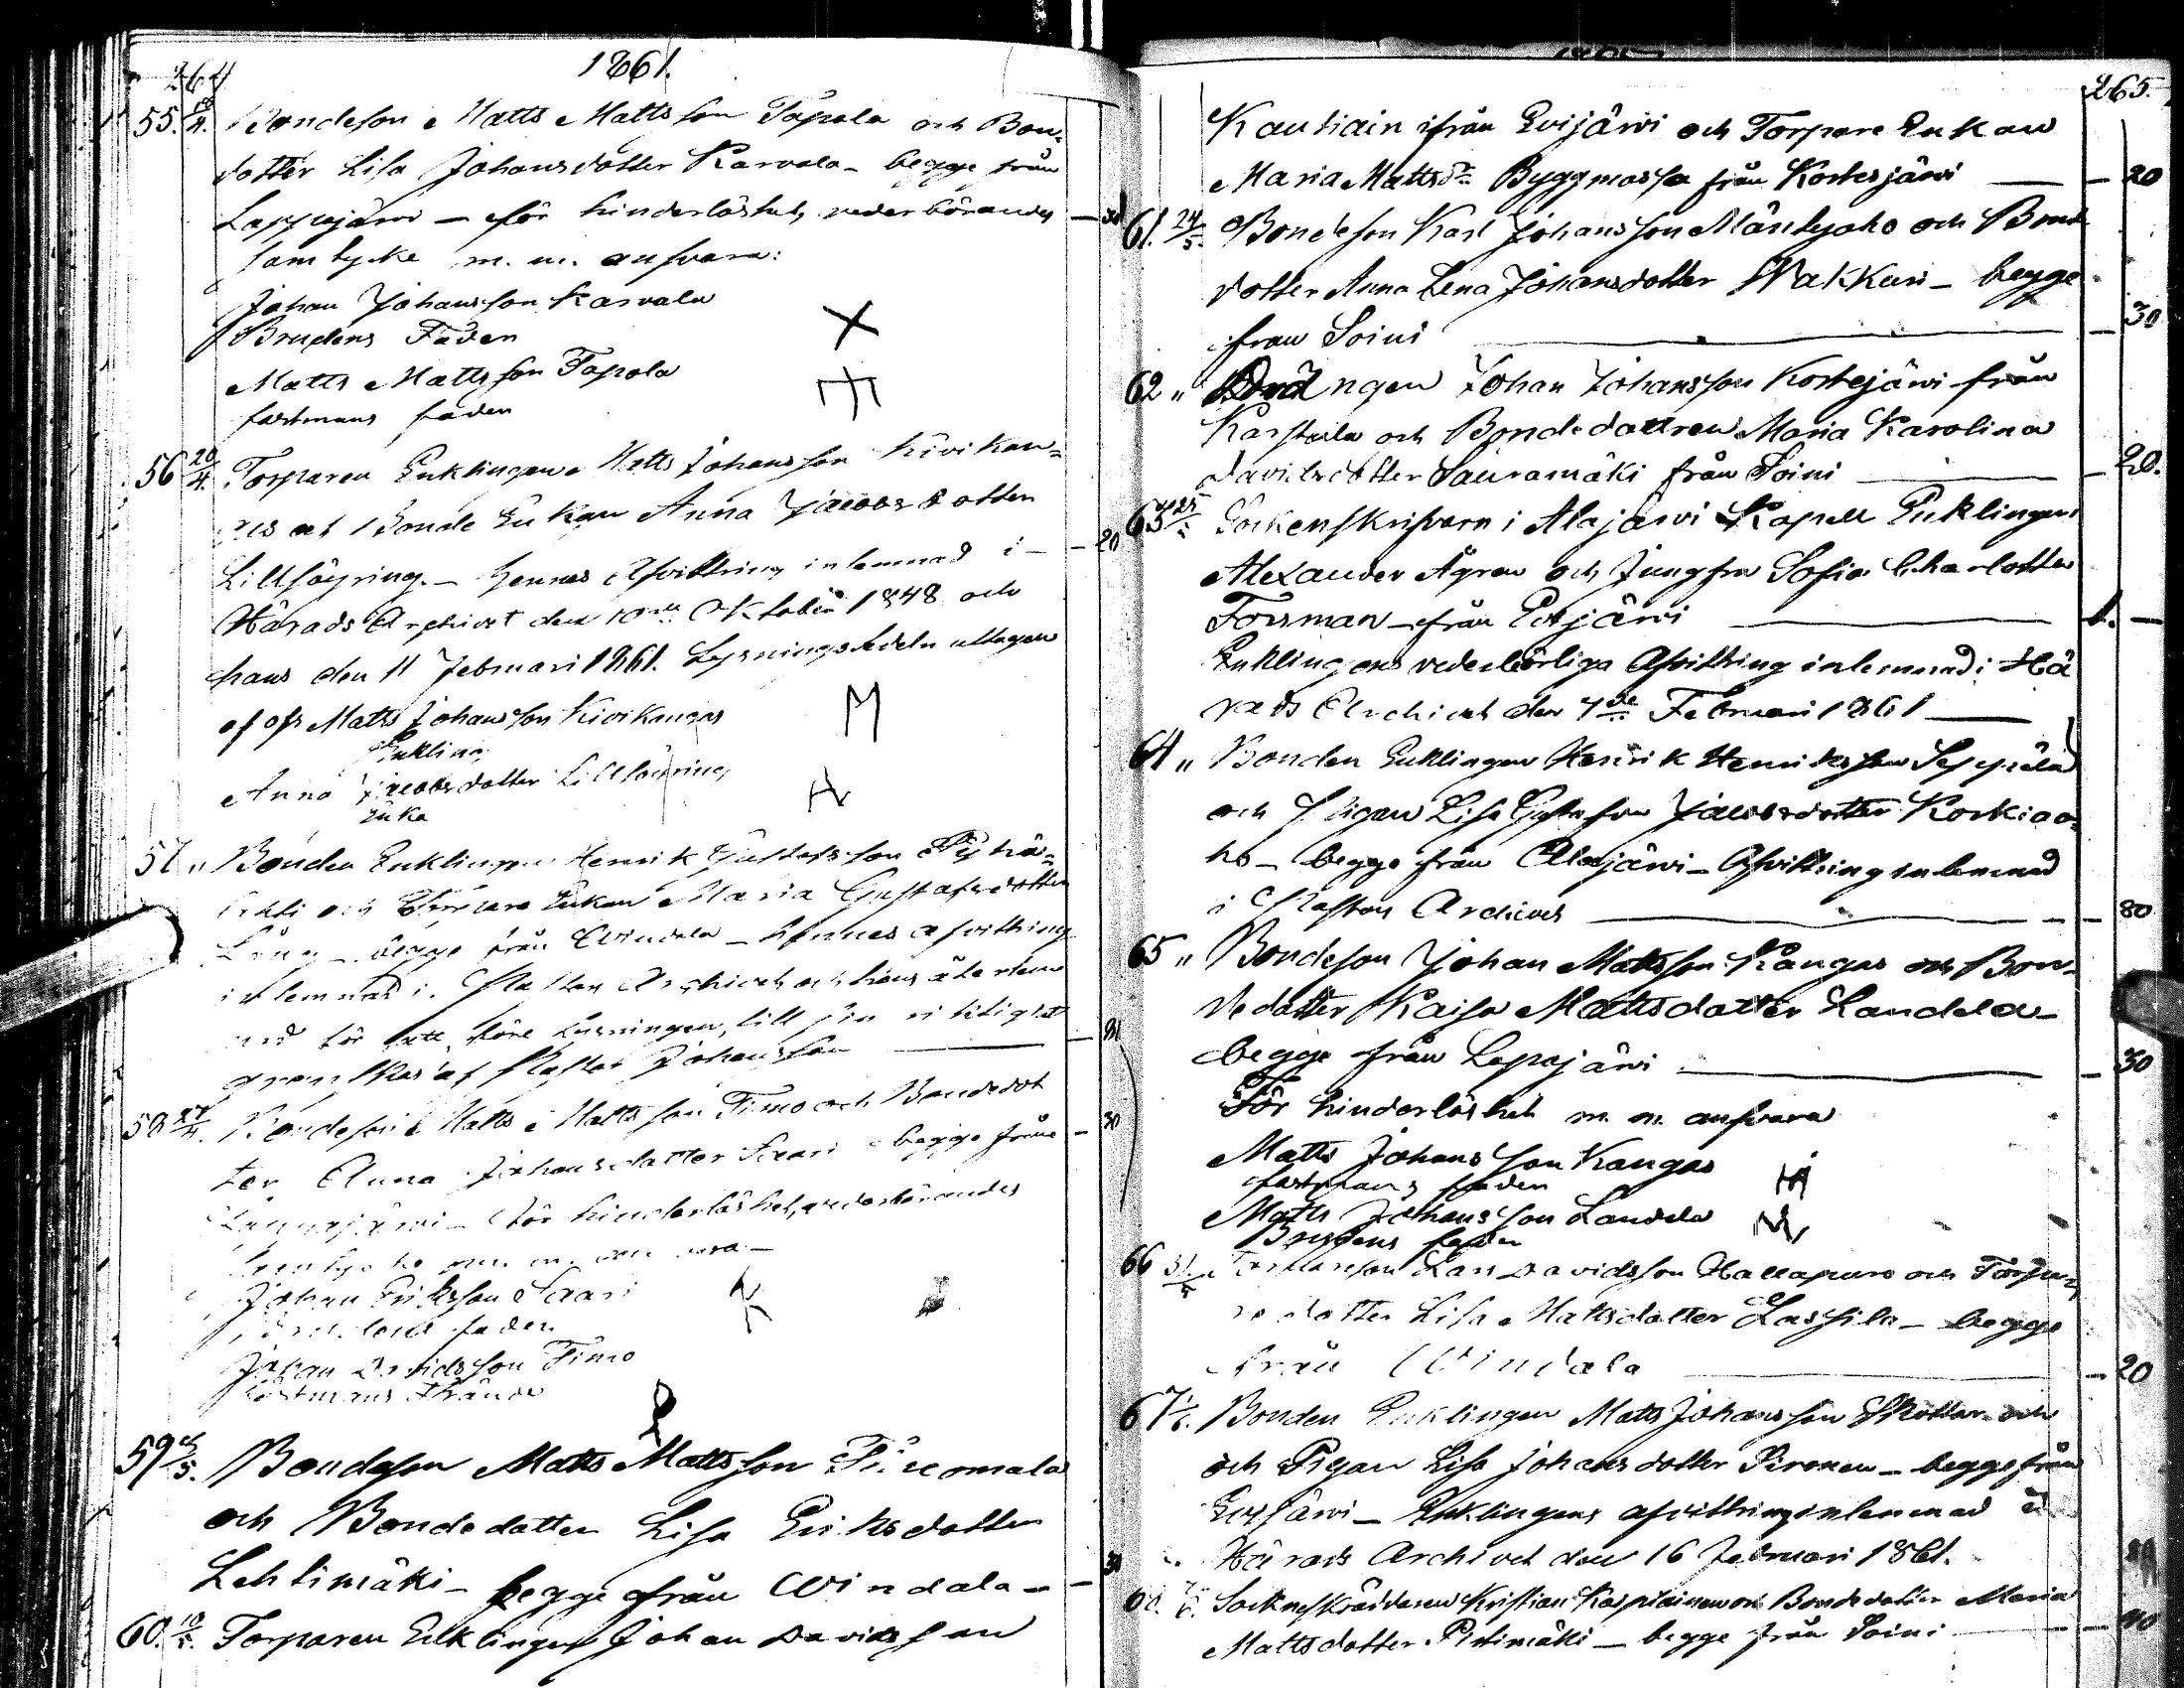 264
1861.
55. Bondeson Matts Mattsson Tapola och Bon=
dotter Lisa Johansdotter Karvala - begge från
Lappajärvi - för hinderlöshet, vederbörandes
samtycke m. m. ansvara:
Johan Johansson Karvala
Brudens Fader
Matts Mattsson Tapola
fästmans fader
56 20/4. Torparen Enklingen Matts Johansson Kivikan=
gas och Bonde Enkan Anna Jacobsdotter
Lillsöyring. - hennes Afvittring inlemnad i
Härads Archivet den 10de Oktober 1848 och
hans den 11 Februari 1861. Lysningssedeln uttagen
af Matts Johansson Kivikangas
Enkling
Anna Jacobsdotter Lillsöyring
Enka
57 " Bonden Enklingen Henrik Gustafsson Pyhä=
och Torpare Enkan Maria Gustafsdotter
Lång - begge från Windala - hennes afvittring
inlemnad i Pastors Archivet och hans
för att före Lysningen, till
granskas af Pastor Johansson
58 Bondeson Matts Mattsson Timo och Bondedot
ter Anna Johansdotter Saari begge från
Lappajärvi - för hinderlöshet, vederbörandes
samtycke m. m. ansvara -
Johan Eriksson Saari
Brudens fader
Johan Davidsson Timo
fästmans frände
59 Bondeson Matts Mattsson
och Bondedotter Lisa Eriksdotter
Lehtimäki - begge från Windala -
60. Torparen Enklingen Johan Davidsson
265.
Kautiain ifrån Evijärvi och Torpare Enkan
Maria Mattsdr Byggmassa från Kortesjärvi — 20
61. 24/5. Bondeson Karl Johansson Mäntyaho och Bonde
dotter Anna Lena Johansdotter Wakkuri - begge
från Soini — 30
62 " Drängen Johan Johansson Kortejärvi från
Karstula och Bondedottren Maria Karolina
Davidsdotter Sauramäki från Soini — 20.
63 Sockenskrifvaren i Alajärvi Kapell Enklingen
Alexander Ågren och Jungfru Sofia Charlotta
Forsman - från Evijärvi — 1. —
Enklingens vederbörliga Afvittring inlemnad i Hä
rads Archivet den 7de Februari 1861 —
64 " Bonden Enklingen Henrik Henriksson Seppälä
och Pigan Lisa Jacobsdotter Korkiaa=
ho - begge från Alajärvi - Afvittring inlemnad
i Pastors Archivet — 80
65 " Bondeson Johan Mattsson Kangas och Bon=
dedotter Kaisa Mattsdotter Landela -
begge från Lapajärvi — 30
För hinderlöshet m. m. ansvara
Matts Johansson Kangas
fästmans fader
Matts Johansson Landela
Brudens fader
66 Torpareson Lars Davidsson Hallapuro och Torpa=
redotter Lisa Mattsdotter Lassila - begge
från Windala — 20
67 Bonden Enklingen Matts Johansson Skottar och
och Pigan Lisa Johansdotter Pironen - begge från
Evijärvi - Enklingens afvittring inlemnad i
Härads Archivet den 16 Februari 1861.
Sockneskräddaren Kristian och Bondedotter Maria
Mattsdotter - begge från Soini — 40